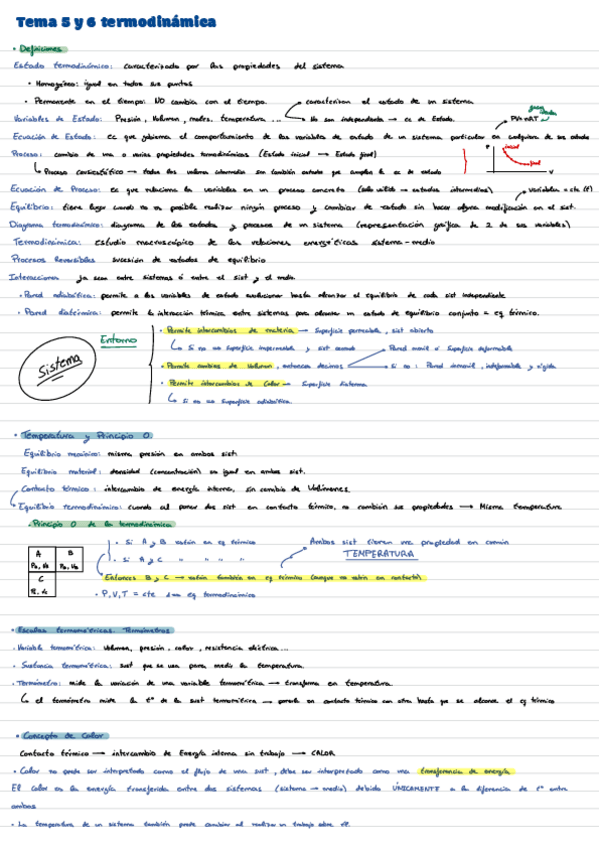 Tema 5 y 6 termodinámica
• Definiciones
Estado termodinámico: caracterizado por las propiedades del sistema
• Homogéneo: igual en todos sus puntos
• Permanente en el tiempo: NO cambia con el tiempo.
caracterizan el estado de un sistema
Variables de Estado: Presión, Volumen, masa, temperatura ...
No son independientes → ec de Estado.
PV=nRT
Ecuación de Estado: ec que gobierna el comportamiento de las variables de estado de un sistema particular en cualquiera de sus estados
Proceso: cambio de una o varias propiedades termodinámicas (Estado inicial → Estado final)
P
inicial
final
V
Proceso cuasiestático → todos los valores intermedios son también estados que cumplen la ec de estado
Ecuación de Proceso: ec que relaciona las variables en un proceso concreto (solo válida → estados intermedios)
variables = cte (t)
Equilibrio: tiene lugar cuando no es posible realizar ningún proceso y cambiar de estado sin hacer alguna modificación en el sist.
Diagrama termodinámico: diagrama de los estados y procesos de un sistema (representación gráfica de 2 de sus variables)
Termodinámica: estudio macroscópico de las relaciones energéticas sistema-medio
Procesos Reversibles sucesión de estados de equilibrio
Interacciones ya sean entre sistemas o entre el sist y el medio.
• Pared adiabática: permite a las variables de estado evolucionar hasta alcanzar el equilibrio de cada sist independiente
• Pared diatérmica: permite la interacción térmica entre sistemas para alcanzar un estado de equilibrio conjunto = eq térmico.
Sistema
Entorno
• Permite intercambios de materia → Superficie permeable, sist abierto
Si no → Superficie impermeable y sist cerrado
Pared móvil o Superficie deformable
• Permite cambios de Volumen, entonces decimos
Si no: Pared inmóvil, indeformable y rígida
• Permite intercambios de Calor → Superficie diaterma
Si no → Superficie adiabática.
• Temperatura y Principio 0.
Equilibrio mecánico: misma presión en ambos sist.
Equilibrio material: densidad (concentración) es igual en ambos sist.
Contacto térmico: intercambio de energía interna, sin cambio de Volúmenes
Equilibrio termodinámico: cuando al poner dos sist en contacto térmico, no cambian sus propiedades → Misma temperatura
• Principio 0 de la termodinámica
A
B
C
• Si A y B están en eq térmico
• Si A y C " " " "
Entonces B y C → están también en eq térmico (aunque no estén en contacto)
• P,V,T = cte → eq termodinámico
Ambos sist tienen una propiedad en común
TEMPERATURA
• Escalas termométricas. Termómetros
• Variable termométrica: volumen, presión, color, resistencia eléctrica...
• Sustancia termométrica: sust que se usa para medir la temperatura.
• Termómetro: mide la variación de una variable termométrica → transforma en temperatura.
el termómetro mide la tª de la sust termométrica → ponerla en contacto térmico con otra hasta que se alcance el eq térmico
• Concepto de Calor
Contacto térmico → intercambio de Energía interna sin trabajo → CALOR
• Calor no puede ser interpretado como el flujo de una sust, debe ser interpretado como una transferencia de energía
El calor es la energía transferida entre dos sistemas (sistema → medio) debido ÚNICAMENTE a la diferencia de tª entre
ambos
• La temperatura de un sistema también puede cambiar al realizar un trabajo sobre él.